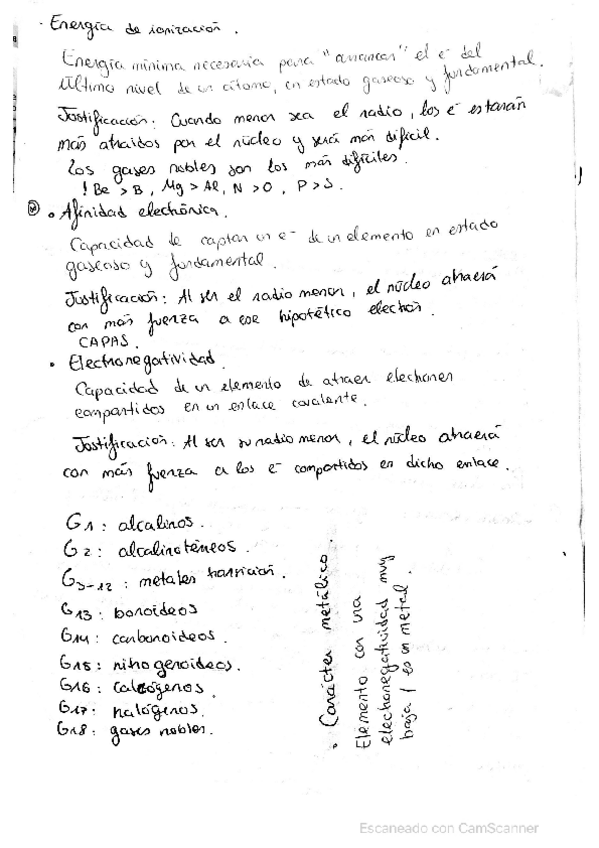 · Energía de ionización.
Energía mínima necesaria para "arrancar" el e⁻ del
último nivel de un átomo, en estado gaseoso y fundamental.
Justificación: Cuando menor sea el radio, los e⁻ estarán
más atraídos por el núcleo y será más difícil.
Los gases nobles son los más difíciles.
! Be > B, Mg > Al, N > O, P > S.
• Afinidad electrónica.
Capacidad de captar un e⁻ de un elemento en estado
gaseoso y fundamental.
Justificación: Al ser el radio menor, el núcleo atraerá
con más fuerza a ese hipotético electrón.
CAPAS.
• Electronegatividad.
Capacidad de un elemento de atraer electrones
compartidos en un enlace covalente.
Justificación: Al ser su radio menor, el núcleo atraerá
con más fuerza a los e⁻ compartidos en dicho enlace.
G1: alcalinos.
G2: alcalinotérreos.
G3-12: metales transición.
G13: boroideos
G14: carbonoideos.
G15: nitrogenoideos.
G16: calcógenos.
G17: halógenos.
G18: gases nobles.
• Carácter metálico.
Elemento con una
electronegatividad muy
baja / es un metal.
Escaneado con CamScanner